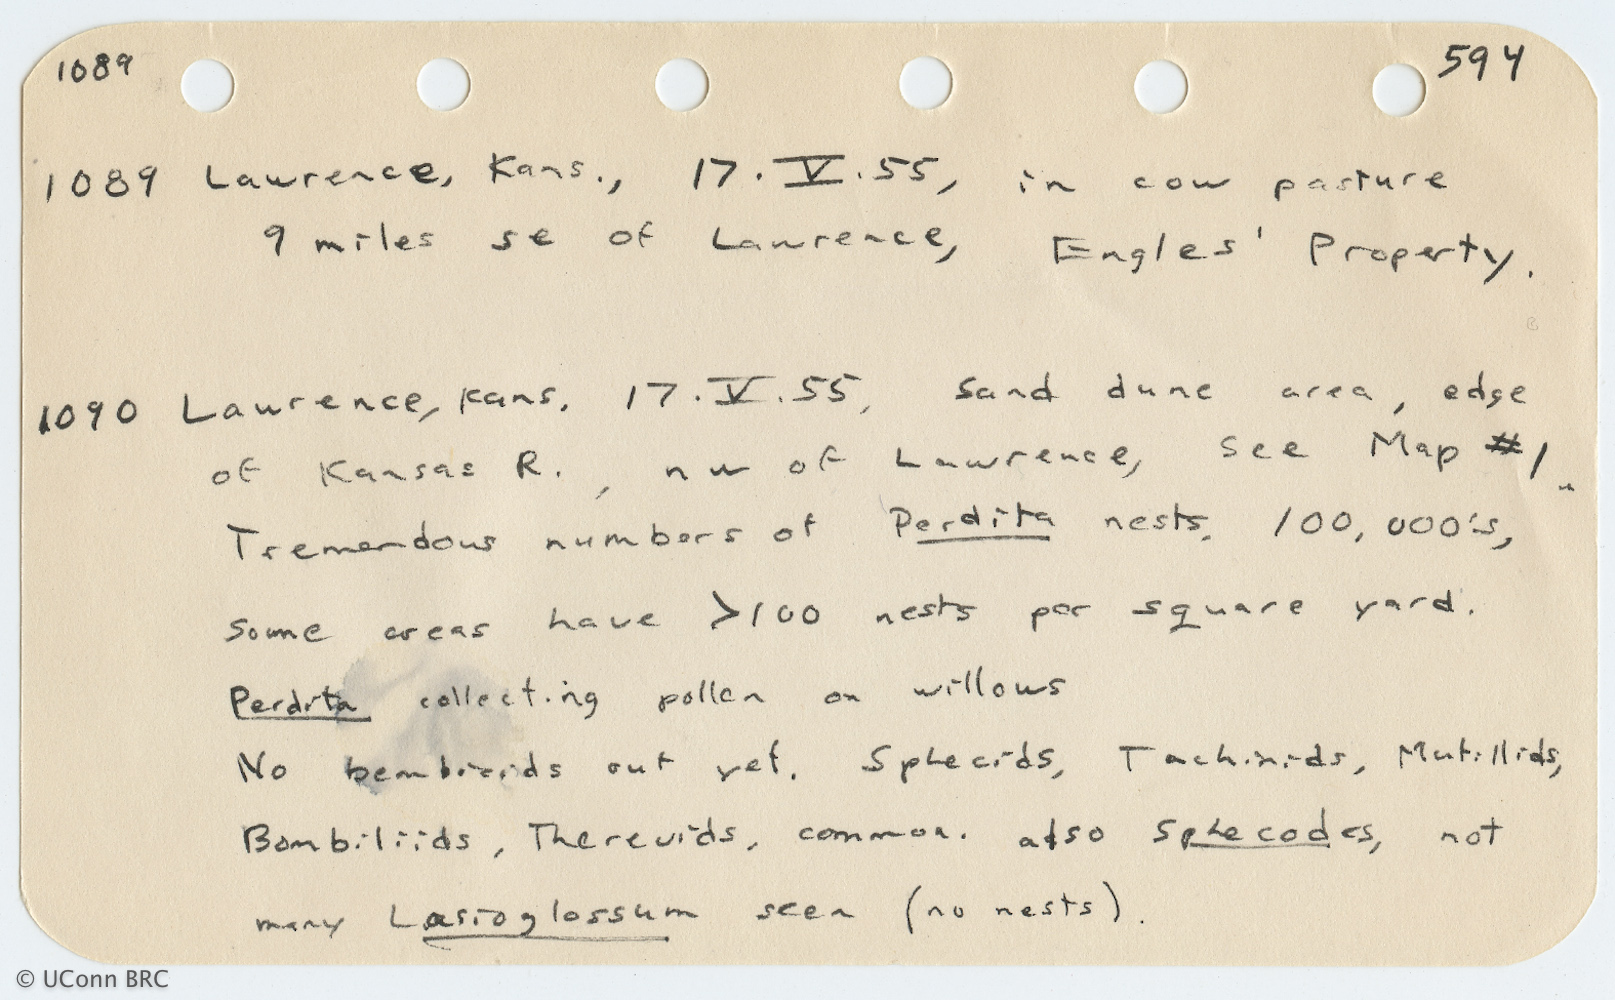 1089 594
1089 Lawrence, Kans., 17.V.55, in cow pasture
9 miles se of Lawrence, Engles' Property.
1090 Lawrence, Kans. 17.V.55, Sand dune area, edge
of Kansas R., nw of Lawrence, See Map #1.
Tremendous numbers of Perdita nests, 100,000's,
some areas have >100 nests per square yard.
Perdita collecting pollen on willows
No bembicids out yet. Sphecids, Tachinids, Mutillids,
Bombiliids, Therevids, common. also Sphecodes, not
many Lasioglossum seen (no nests).
© UConn BRC